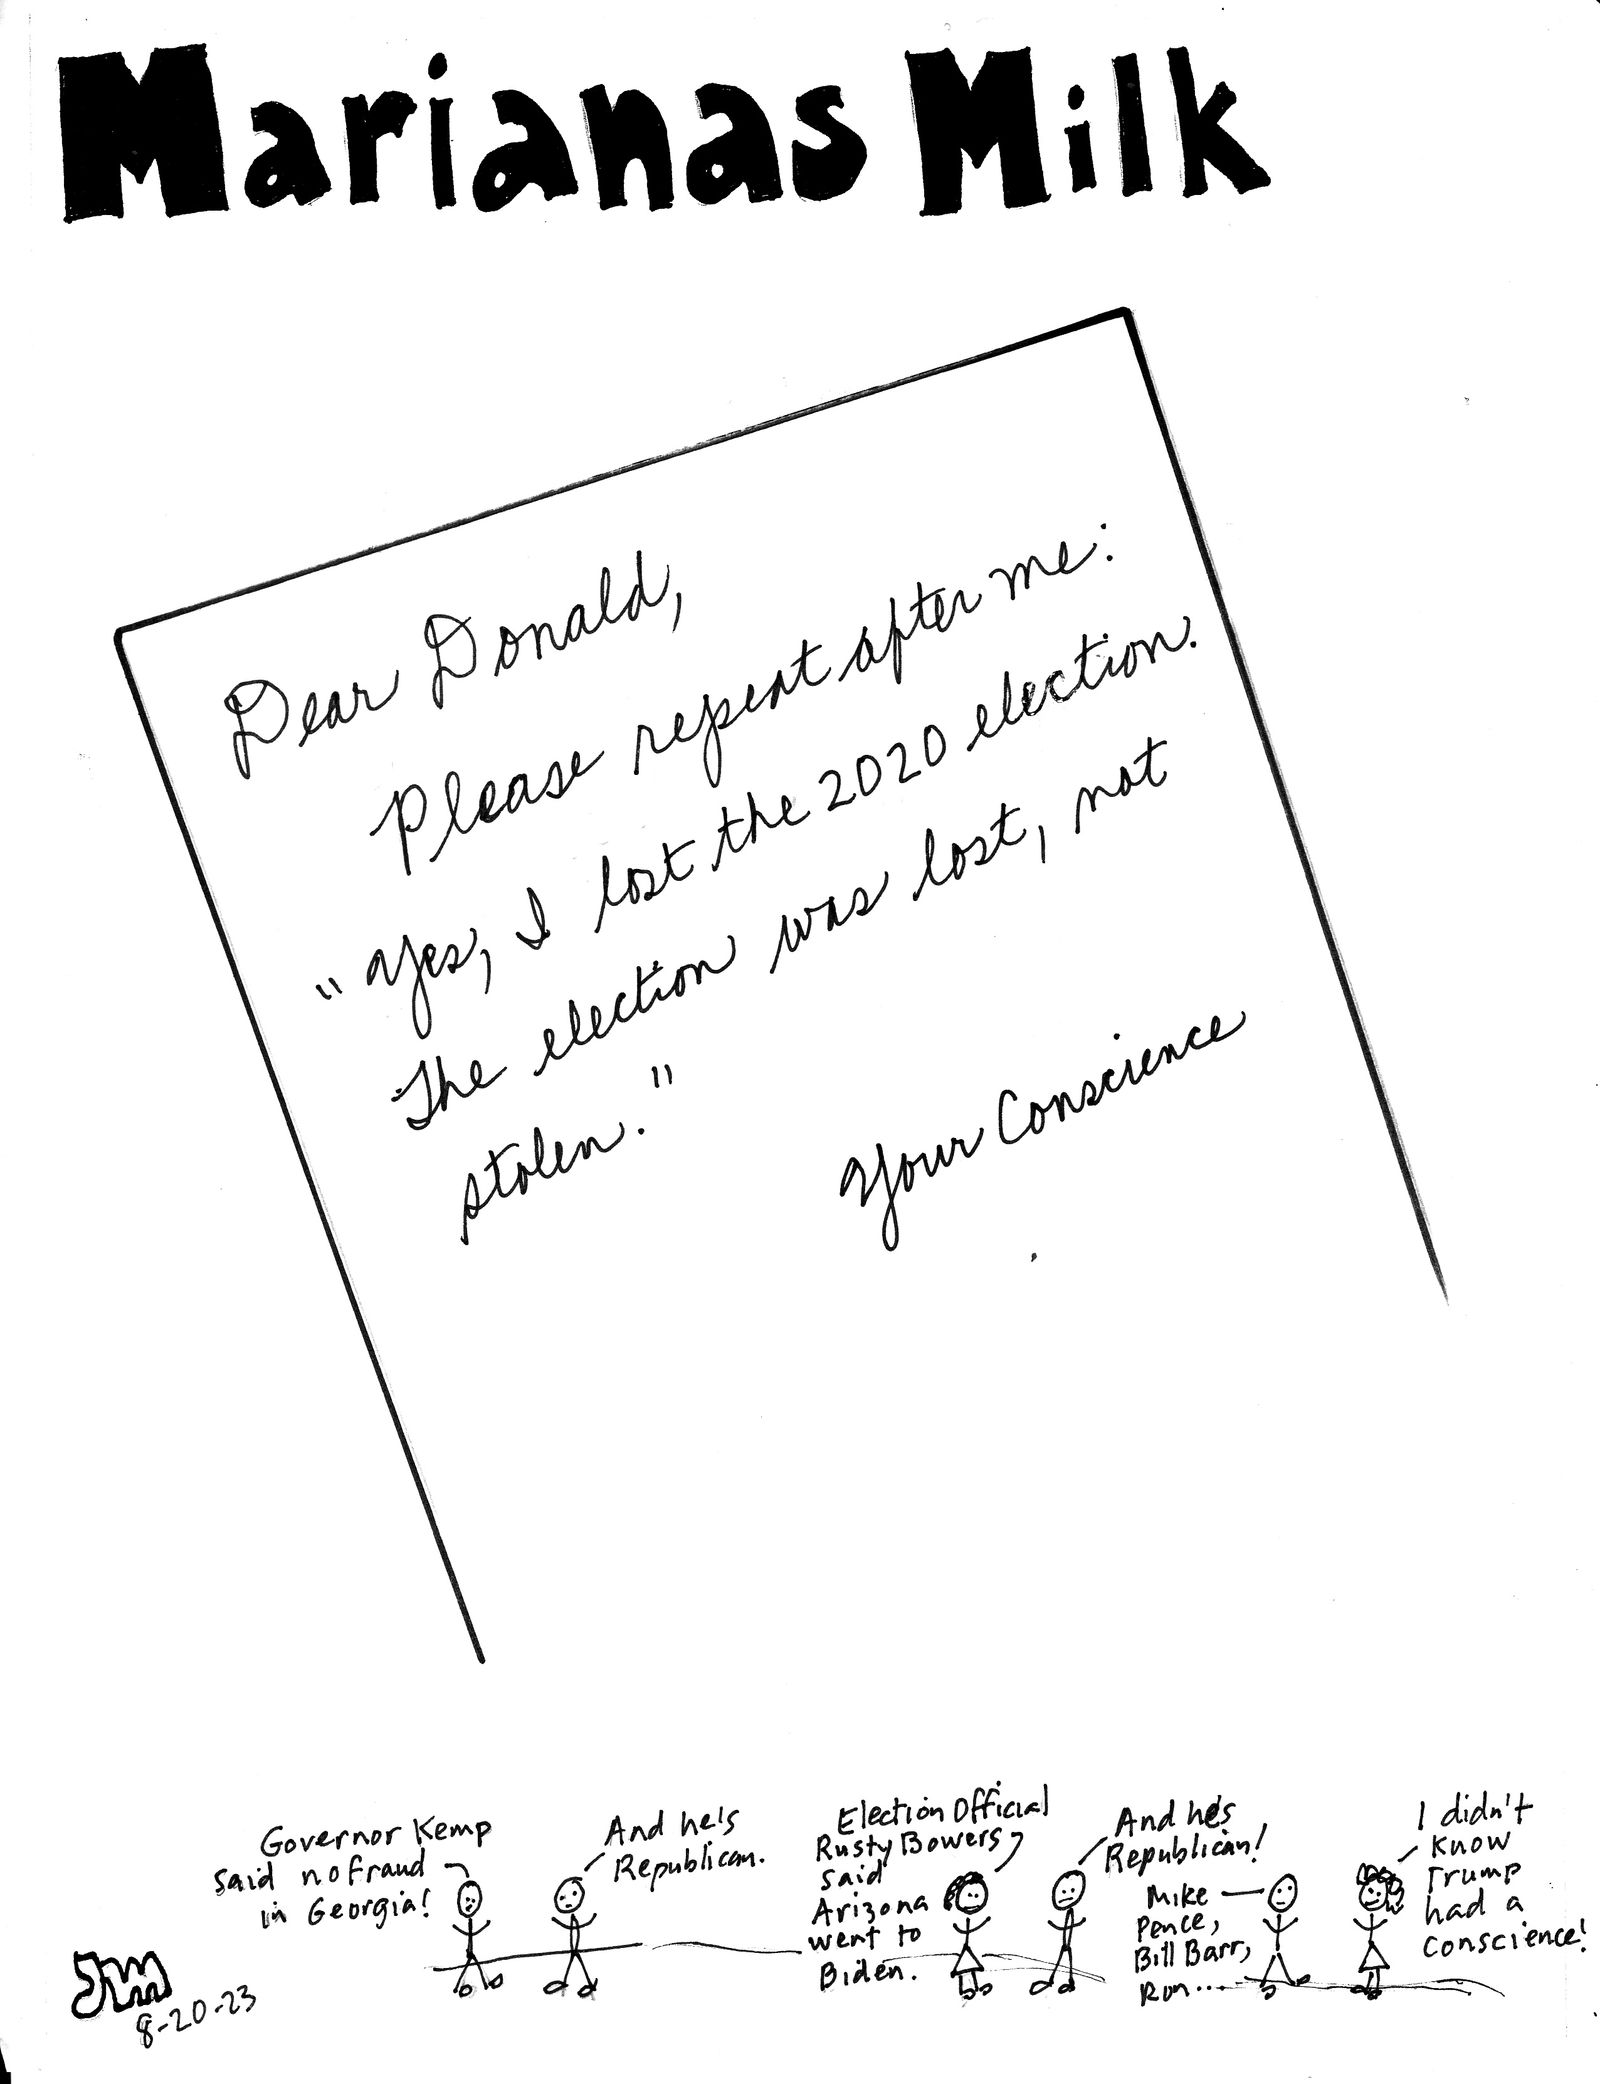 Marianas Milk
Dear Donald,
Please repeat after me:
"Yes, I lost the 2020 election.
The election was lost, not
stolen."
Your Conscience
Governor Kemp
said no fraud
in Georgia!
And he's
Republican.
Election Official
Rusty Bowers
said
Arizona
went to
Biden.
And he's
Republican!
Mike
Pence,
Bill Barr,
Ron...
I didn't
know
Trump
had a
conscience!
8-20-23